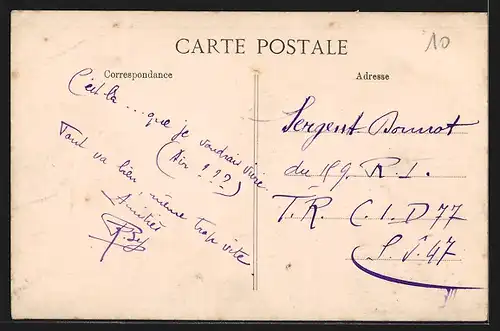 CARTE POSTALE
10
Correspondance
Adresse
C'est là ... que je voudrais vivre.
(Air ???)
Tout va bien, même trop vite
Amitiés
Sergent Bonnot
du 89 R.I.
T.R. C.I.D 77
S.P. 47